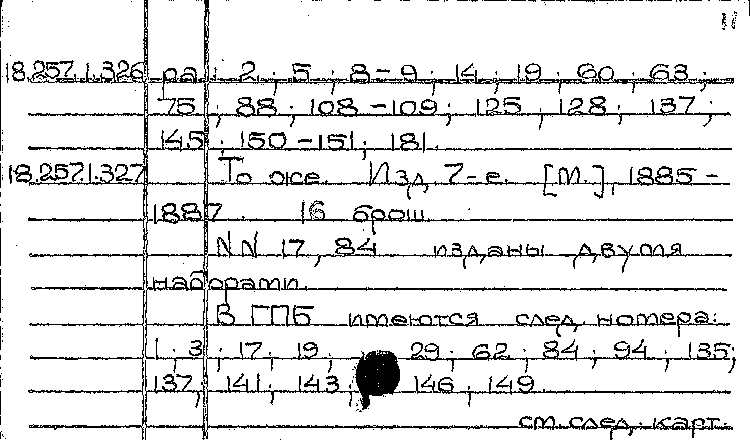 11
18.257.1.326 ра: 2; 5; 8-9; 14; 19; 60; 63;
75; 88; 108-109; 125; 128; 137;
145; 150-151; 181.
18.257.1.327 То же. Изд. 7-е. [М.], 1885-
1887. 16 брош.
NN 17, 84 изданы двумя
наборами.
В ГПБ имеются след. номера:
1; 3; 17; 19; 29; 62; 84; 94; 135;
137; 141; 143; 146; 149.
см. след. карт.